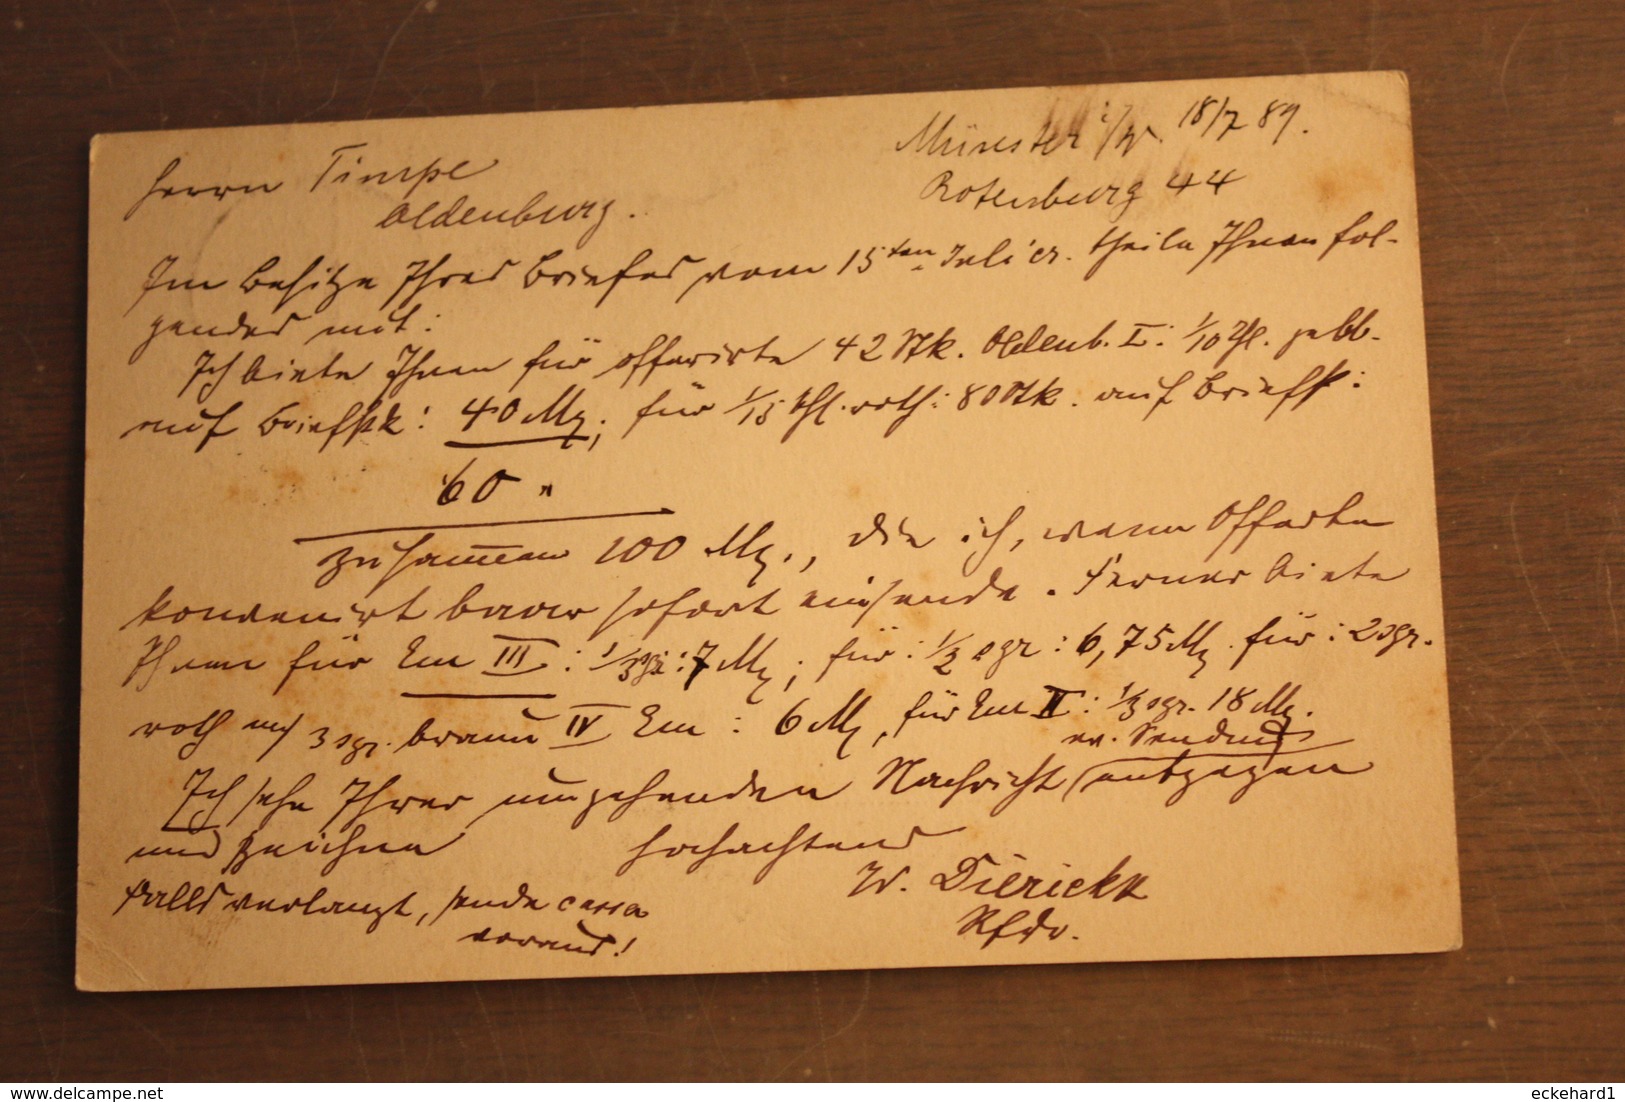 Münster i/W. 18/7 89.
Rotenburg 44
Herrn Timpe
Oldenburg.
Im Besitze Ihres Briefes vom 15ten Juli cr. theile Ihnen fol-
gendes mit:
Ich biete Ihnen für offerirte 42 Stk. Oldenb. I: 1/10 Thl. gelb.
auf Briefstk: 40 Mk, für 1/15 Thl. roth: 80 Stk. auf Briefst:
60 "
zusammen 100 Mk., die ich, wenn Offerte
konvenirt baar sofort einsende. Ferner biete
Ihnen für Em III: 1/3 sgr: 7 Mk, für: 1/2 sgr: 6,75 Mk für: 2 sgr.
roth auf 3 sgr. braun IV Em: 6 Mk, für Em II: 1/3 sgr. 18 Mk.
ev. Sendung
Ich sehe Ihrer umgehenden Nachricht entgegen
und zeichne hochachtend
W. Dierickx
Rfdr.
Falls verlangt, sende cassa
voraus!
eckehard1